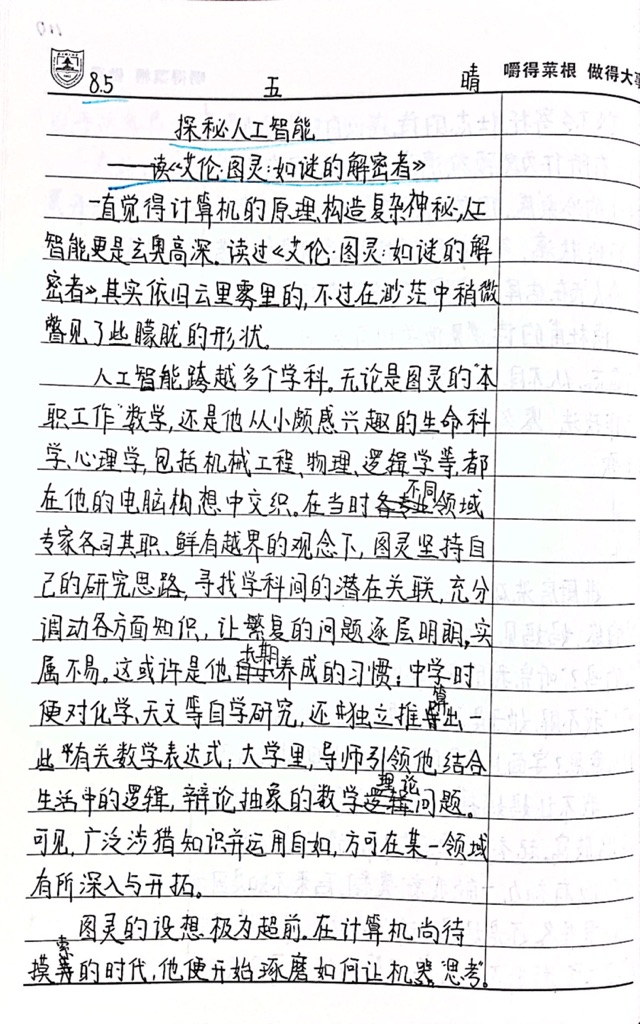 嚼得菜根 做得大事
8.5 五 晴
探秘人工智能
——读《艾伦·图灵:如谜的解密者》
一直觉得计算机的原理、构造复杂神秘,人工
智能更是玄奥高深。读过《艾伦·图灵:如谜的解
密者》,其实依旧云里雾里的,不过在渺茫中稍微
瞥见了些朦胧的形状。
人工智能跨越多个学科。无论是图灵的“本
职工作”数学,还是他从小颇感兴趣的生命科
学、心理学,包括机械工程、物理、逻辑学等,都
在他的电脑构想中交织。在当时不同领域
专家各司其职、鲜有越界的观念下,图灵坚持自
己的研究思路,寻找学科间的潜在关联,充分
调动各方面知识,让繁复的问题逐层明朗,实
属不易。这或许是他长期养成的习惯:中学时
便对化学、天文等自学研究,还独立推算出一
些有关数学表达式;大学里,导师引领他结合
生活中的逻辑,辩论抽象的数学理论问题。
可见,广泛涉猎知识并运用自如,方可在某一领域
有所深入与开拓。
图灵的设想极为超前。在计算机尚待
摸索的时代,他便开始琢磨如何让机器“思考”。